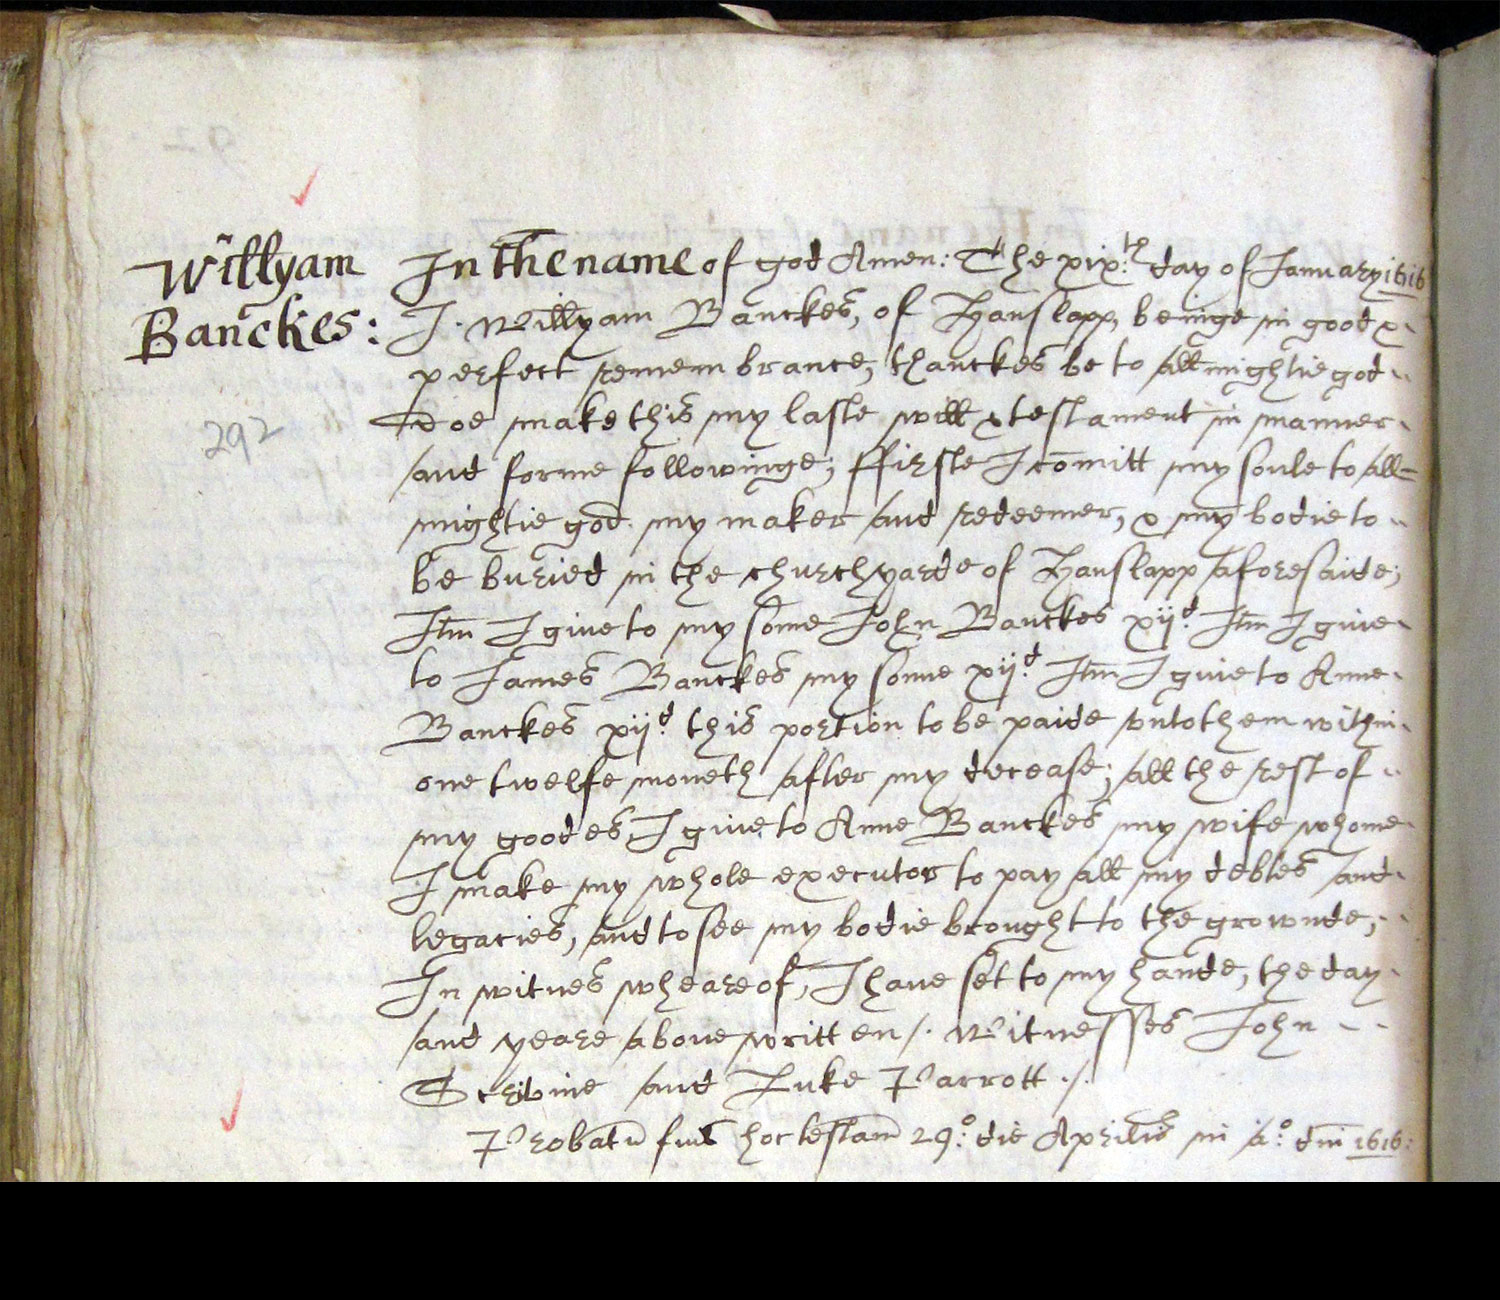 Willyam
Banckes:
292
In the name of god Amen: The xix:th day of January 1616
I. Willyam Banckes, of Hanslapp, beinge in good &
perfect remembrance, thanckes be to allmightie god
Doe make this my laste will & testament in manner
and forme followinge; ffirste I comitt my soule to all=
mightie god my maker and redeemer, & my bodie to
be buried in the churchyarde of Hanslapp aforesaide;
Itm I give to my sonne John Banckes xijd. Itm I give
to James Banckes my sonne xijd. Itm I give to Anne
Banckes xijd. this portion to be paide vnto them within
one twelfe moneth after my decease; all the rest of
my goodes, I give to Anne Banckes my wife whome
I make my whole executor to pay all my debtes and
legacies, and to see my bodie brought to the grownde;
In witnes wheareof, I have set to my hande, the day
and yeare above written /. Witnesses John
Scribine and Luke Parrott ./.
Probatu fuit hoc testam 29:o die Aprilis in a:o dni 1616: